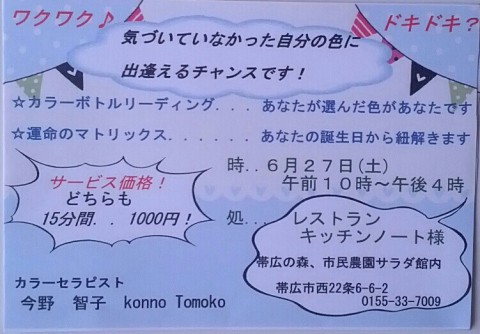 ワクワク♪
ドキドキ？
気づいていなかった自分の色に
出逢えるチャンスです！
☆カラーボトルリーディング... あなたが選んだ色があなたです
☆運命のマトリックス...... あなたの誕生日から紐解きます
時..6月27日(土)
午前10時～午後4時
サービス価格！
どちらも
15分間..1000円！
処... レストラン
キッチンノート様
帯広の森、市民農園サラダ館内
帯広市西22条6-6-2
0155-33-7009
カラーセラピスト
今野 智子 konno Tomoko